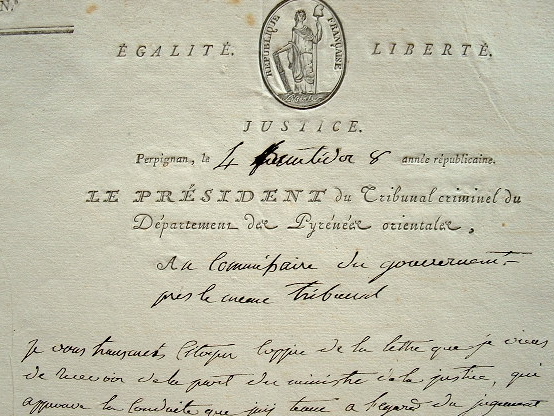 N.º
RÉPUBLIQUE FRANÇAISE
ÉGALITÉ. LIBERTÉ.
JUSTICE.
Perpignan, le 4 8 année républicaine.
LE PRÉSIDENT du Tribunal criminel du
Département des Pyrénées orientales,
Au Commissaire du gouvernement
pres le meme tribunal
je vous transmets Citoyen Coppie de la lettre que je viens
de recevoir de la part du ministre de la justice, qui
approuve la Conduite que j'ai tenue a l'egard du jugement